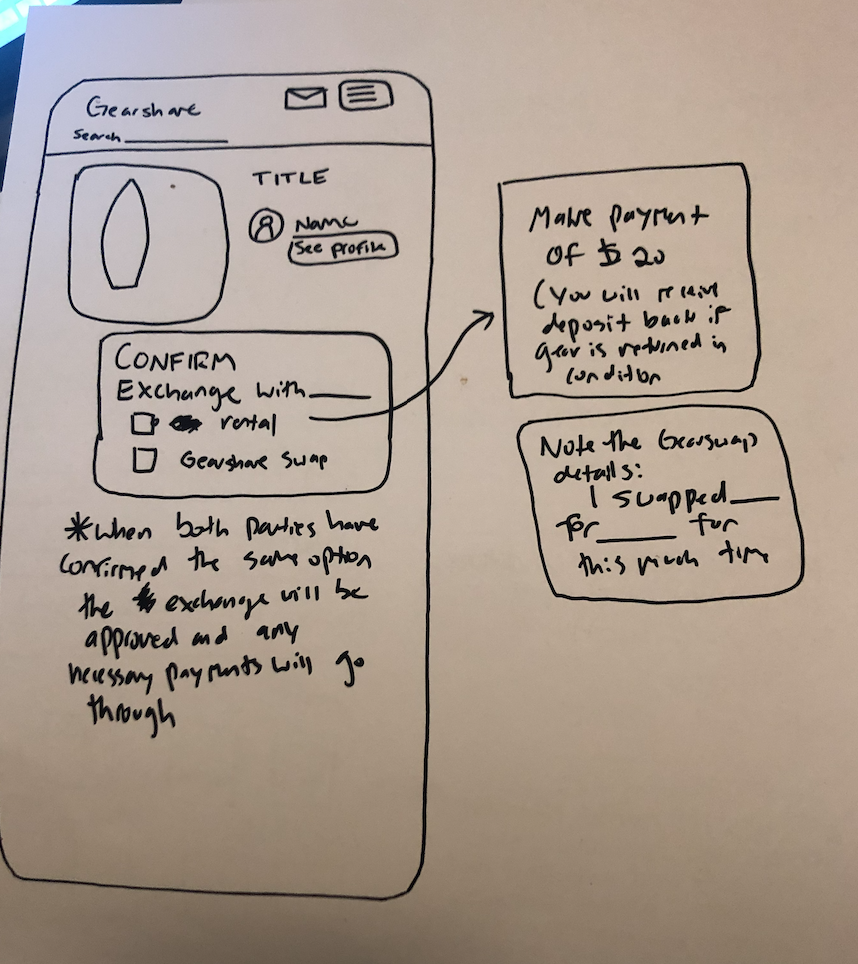 Gearshare
Search
TITLE
Name
See profile
CONFIRM
Exchange with
rental
Gearshare Swap
*When both parties have
confirmed the same option
the exchange will be
approved and any
necessary payments will go
through
Make payment
of $20
(You will receive
deposit back if
gear is returned in
condition
Note the Gearswap
details:
I swapped
for for
this much time